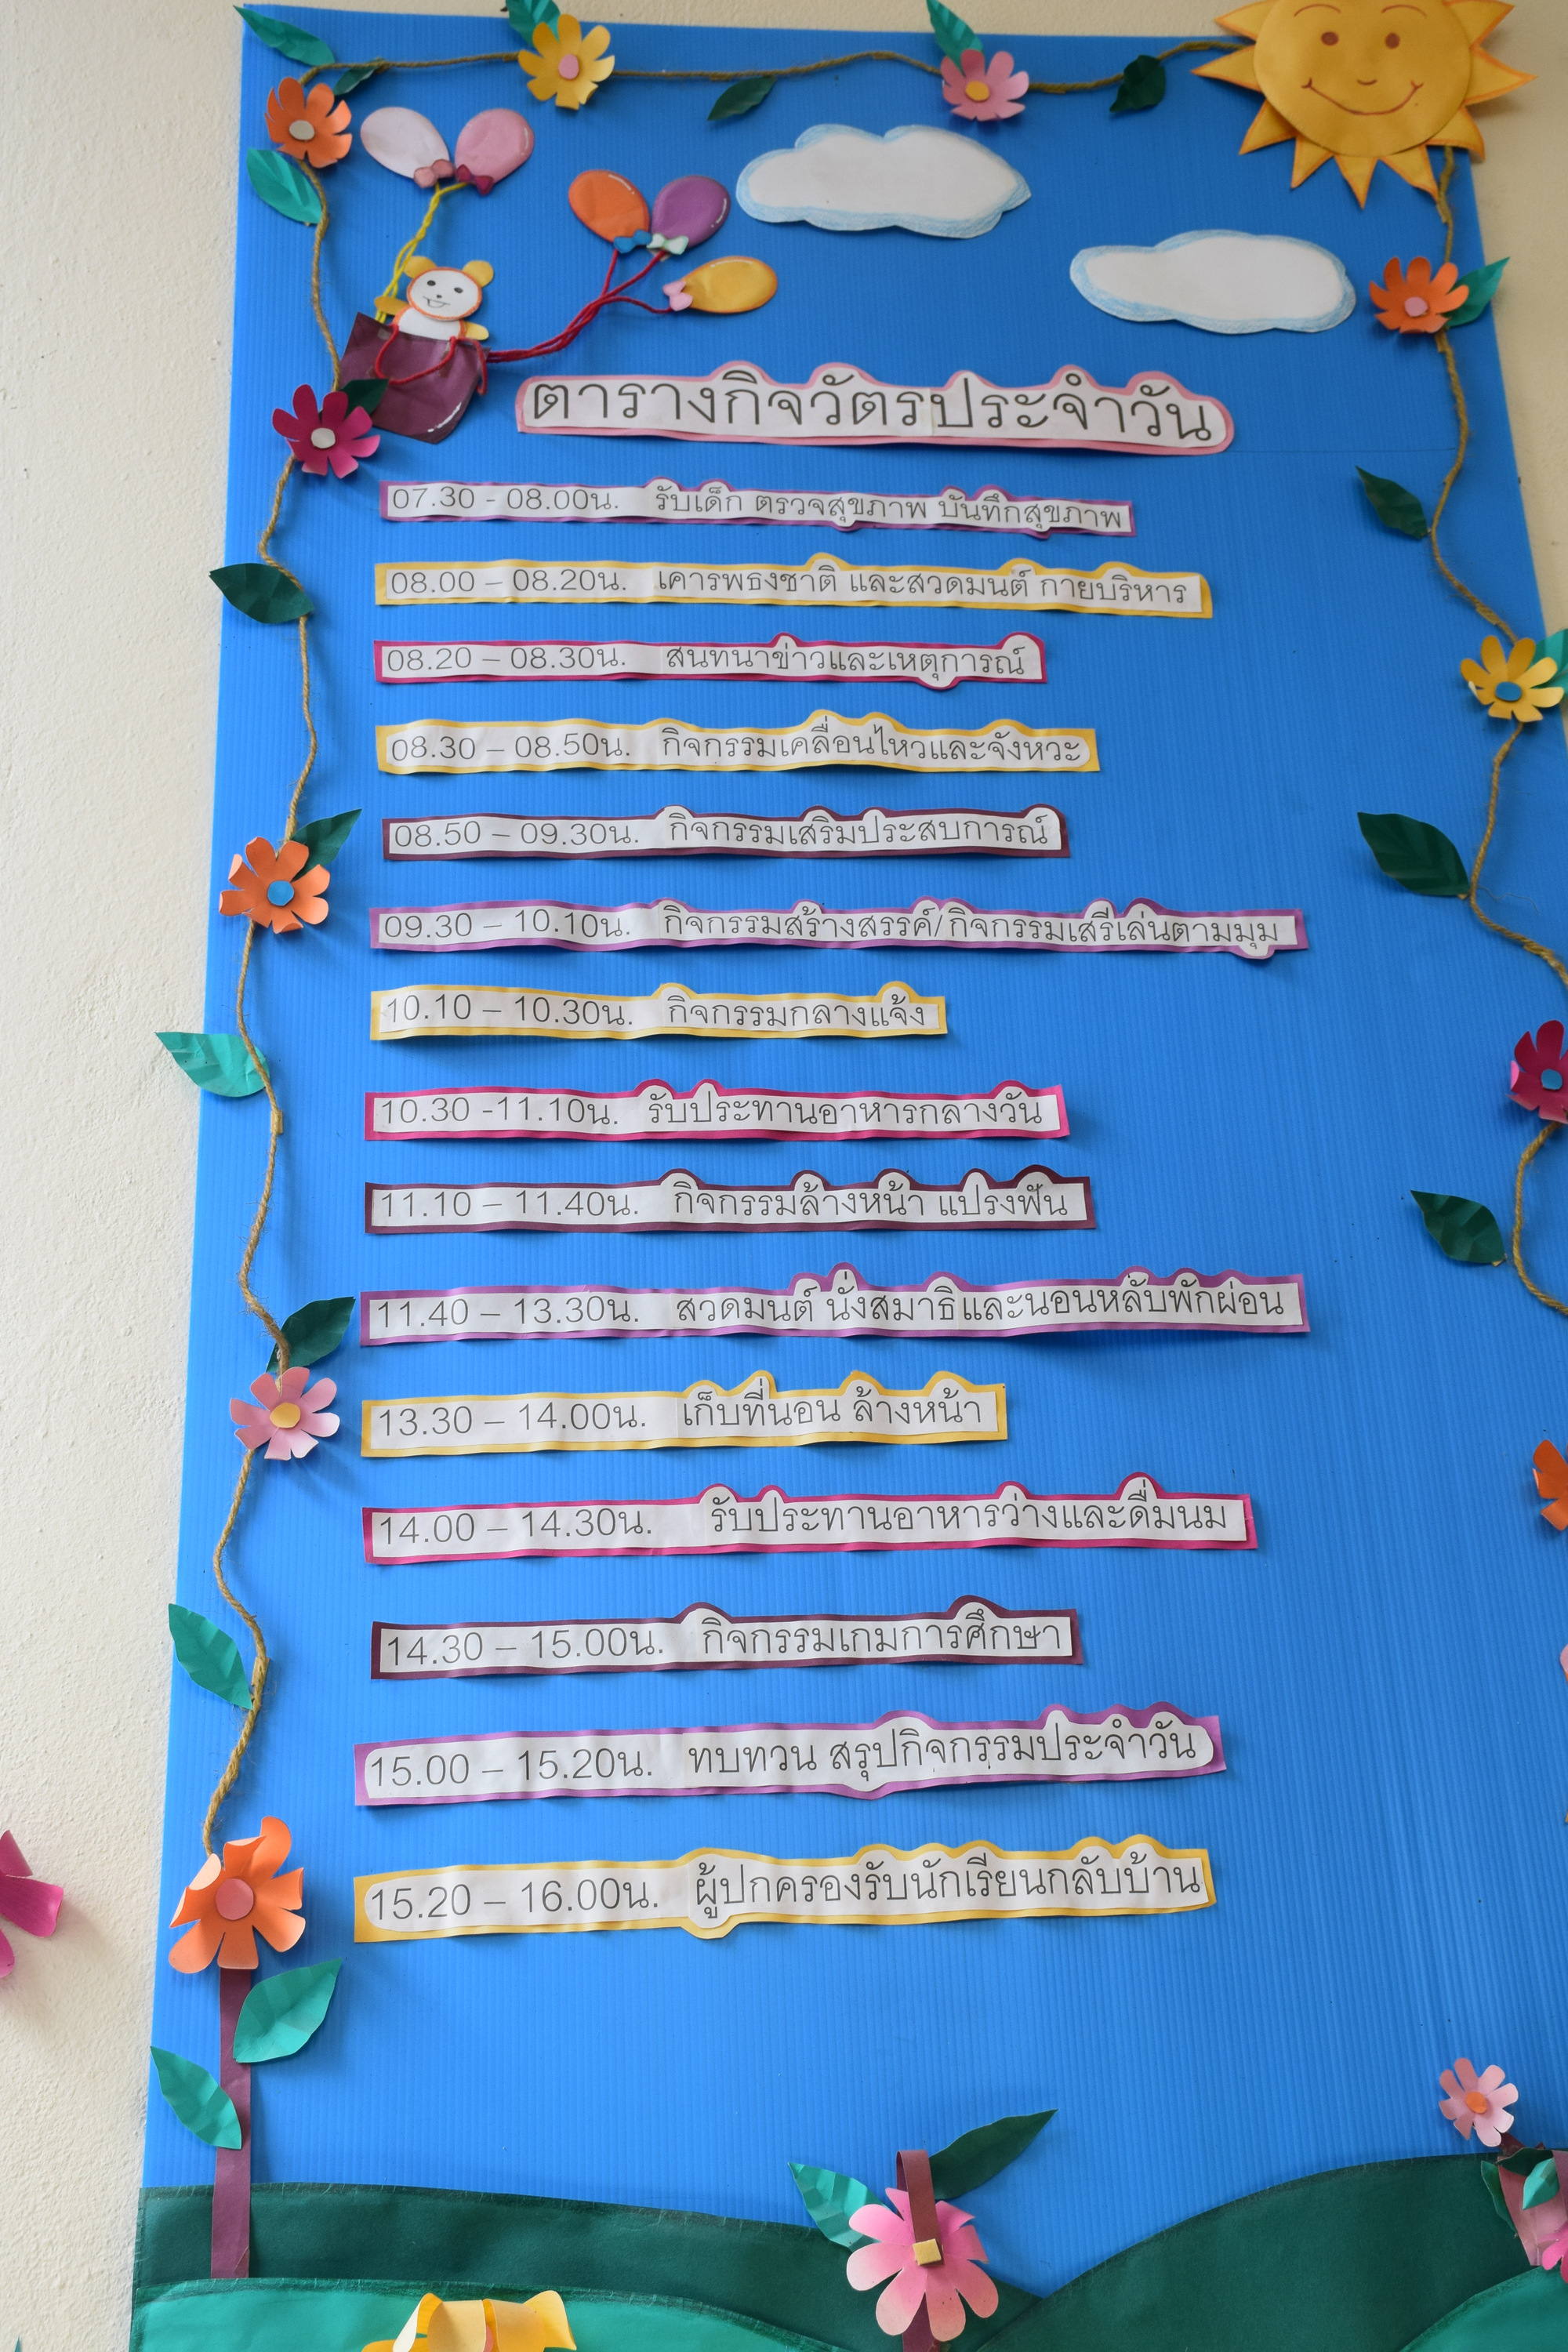 ตารางกิจวัตรประจำวัน
07.30 - 08.00น. รับเด็ก ตรวจสุขภาพ บันทึกสุขภาพ
08.00 – 08.20น. เคารพธงชาติ และสวดมนต์ กายบริหาร
08.20 – 08.30น. สนทนาข่าวและเหตุการณ์
08.30 – 08.50น. กิจกรรมเคลื่อนไหวและจังหวะ
08.50 – 09.30น. กิจกรรมเสริมประสบการณ์
09.30 – 10.10น. กิจกรรมสร้างสรรค์/กิจกรรมเสรีเล่นตามมุม
10.10 – 10.30น. กิจกรรมกลางแจ้ง
10.30 -11.10น. รับประทานอาหารกลางวัน
11.10 – 11.40น. กิจกรรมล้างหน้า แปรงฟัน
11.40 – 13.30น. สวดมนต์ นั่งสมาธิและนอนหลับพักผ่อน
13.30 – 14.00น. เก็บที่นอน ล้างหน้า
14.00 – 14.30น. รับประทานอาหารว่างและดื่มนม
14.30 – 15.00น. กิจกรรมเกมการศึกษา
15.00 – 15.20น. ทบทวน สรุปกิจกรรมประจำวัน
15.20 – 16.00น. ผู้ปกครองรับนักเรียนกลับบ้าน